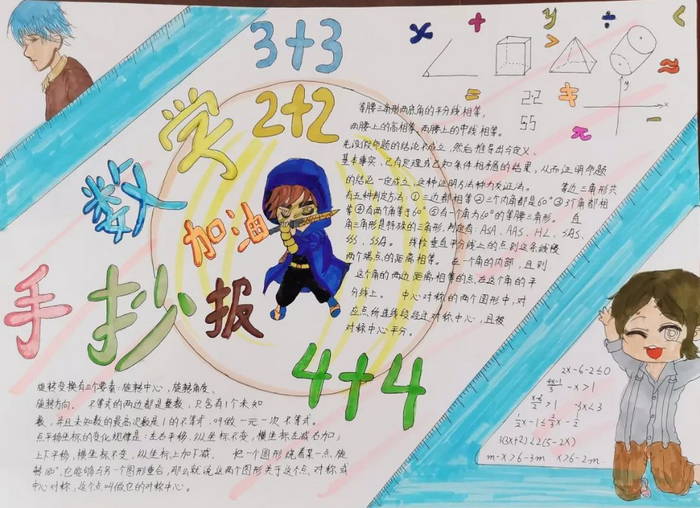 3+3
2+2
数学
加油
手抄报
4+4
x + y ÷ <
> ≈
= π
22
55
y
x
等腰三角形两底角的平分线相等,
两腰上的高相等,两腰上的中线相等。
先假设命题的结论不成立,然后推导出与定义、
基本事实、已有定理或已知条件相矛盾的结果,从而证明命题
的结论一定成立,这种证明方法称为反证法。 等边三角形共
有五种判定方法:①三边都相等②三个内角都是60°③3个角都相
等④有两个角等于60°⑤有一个角为60°的等腰三角形。 直
角三角形是特殊的三角形,判定有ASA、AAS、HL、SAS、
SSS、SSA。 线段垂直平分线上的点到这条线段
两个端点的距离相等。 在一个角的内部,且到
这个角的两边距离相等的点,在这个角的平
分线上。 中心对称的两个图形中,对
应点所连线段经过对称中心,且被
对称中心平分。
旋转变换有三个要素:旋转中心,旋转角度、
旋转方向。 不等式的两边都是整数,只含有1个未知
数,并且未知数的最高次数是1的不等式,叫做一元一次不等式。
点平移坐标的变化规律是:左右平移,纵坐标不变,横坐标左减右加;
上下平移,横坐标不变,纵坐标上加下减。 把一个图形绕着某一点,旋
转180°,它能够与另一个图形重合,那么就说这两个图形关于这个点对称或
中心对称,这个点叫做它的对称中心。
2x-6-2≤0
-x>1
>1 -3x<3
-2x
3(x+2)<2(5-2x)
m-x>6-3m x>6-2m